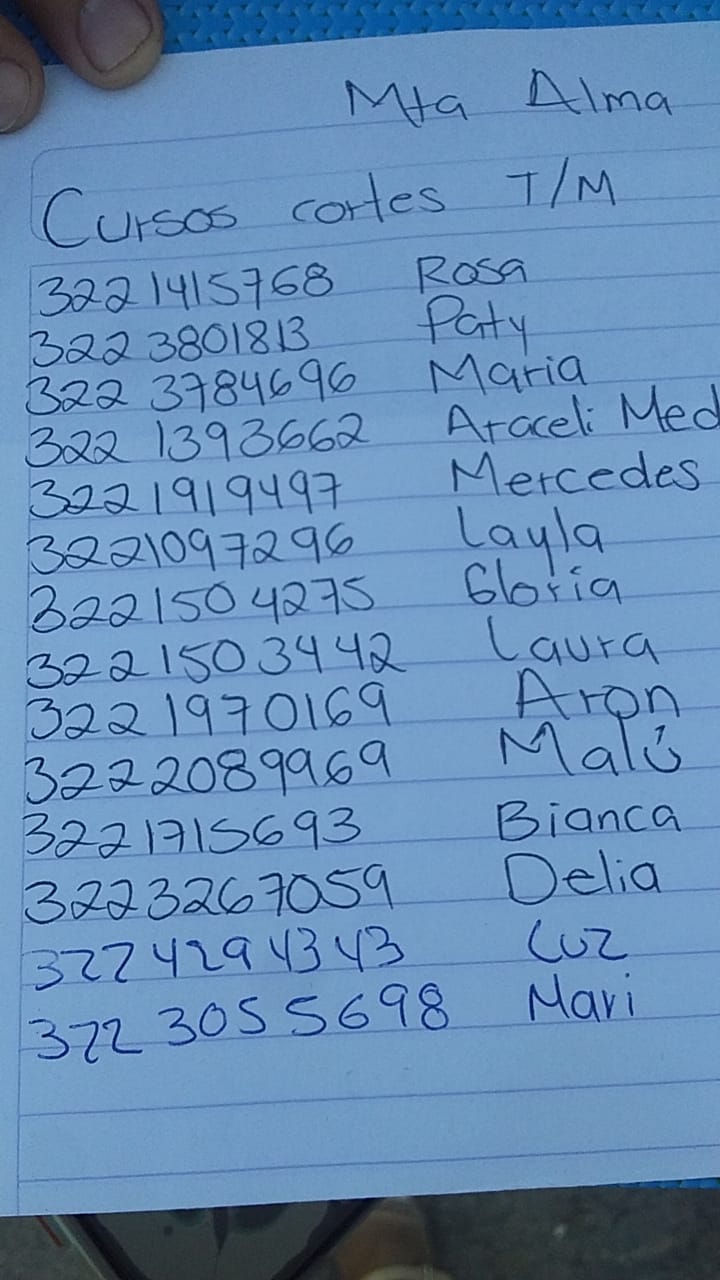 Mta Alma
Cursos cortes T/M
322 1415768 Rosa
322 3801813 Paty
322 3784696 Maria
322 1393662 Araceli Med
322 1919497 Mercedes
3221097296 Layla
3221504275 Gloria
322 1503442 Laura
322 1970169 Aron
3222089969 Malú
3221715693 Bianca
3223267059 Delia
3224294343 Luz
322 3055698 Mari